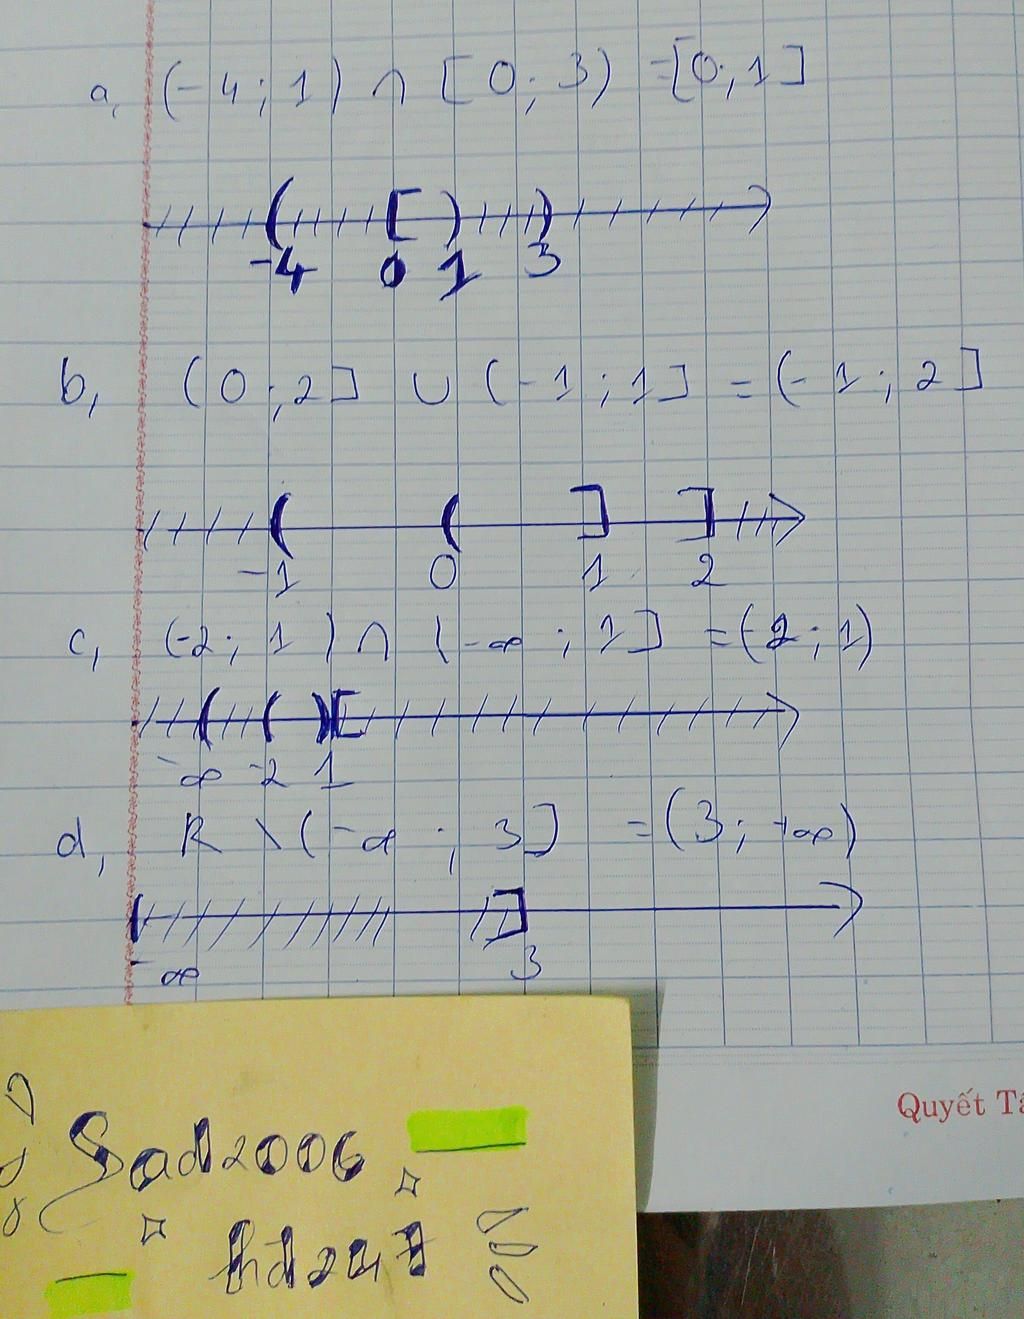 a, (-4; 1) ∩ [0; 3) =[0; 1]
-4 0 1 3
b, (0; 2] ∪ (-1; 1] = (-1; 2]
-1 0 1 2
c, (-2; 1) ∩ (-∞; 1] = (-2; 1)
-∞ -2 1
d, R \ (-∞; 3] = (3; +∞)
-∞ 3
Quyết
Sad2006
hd247